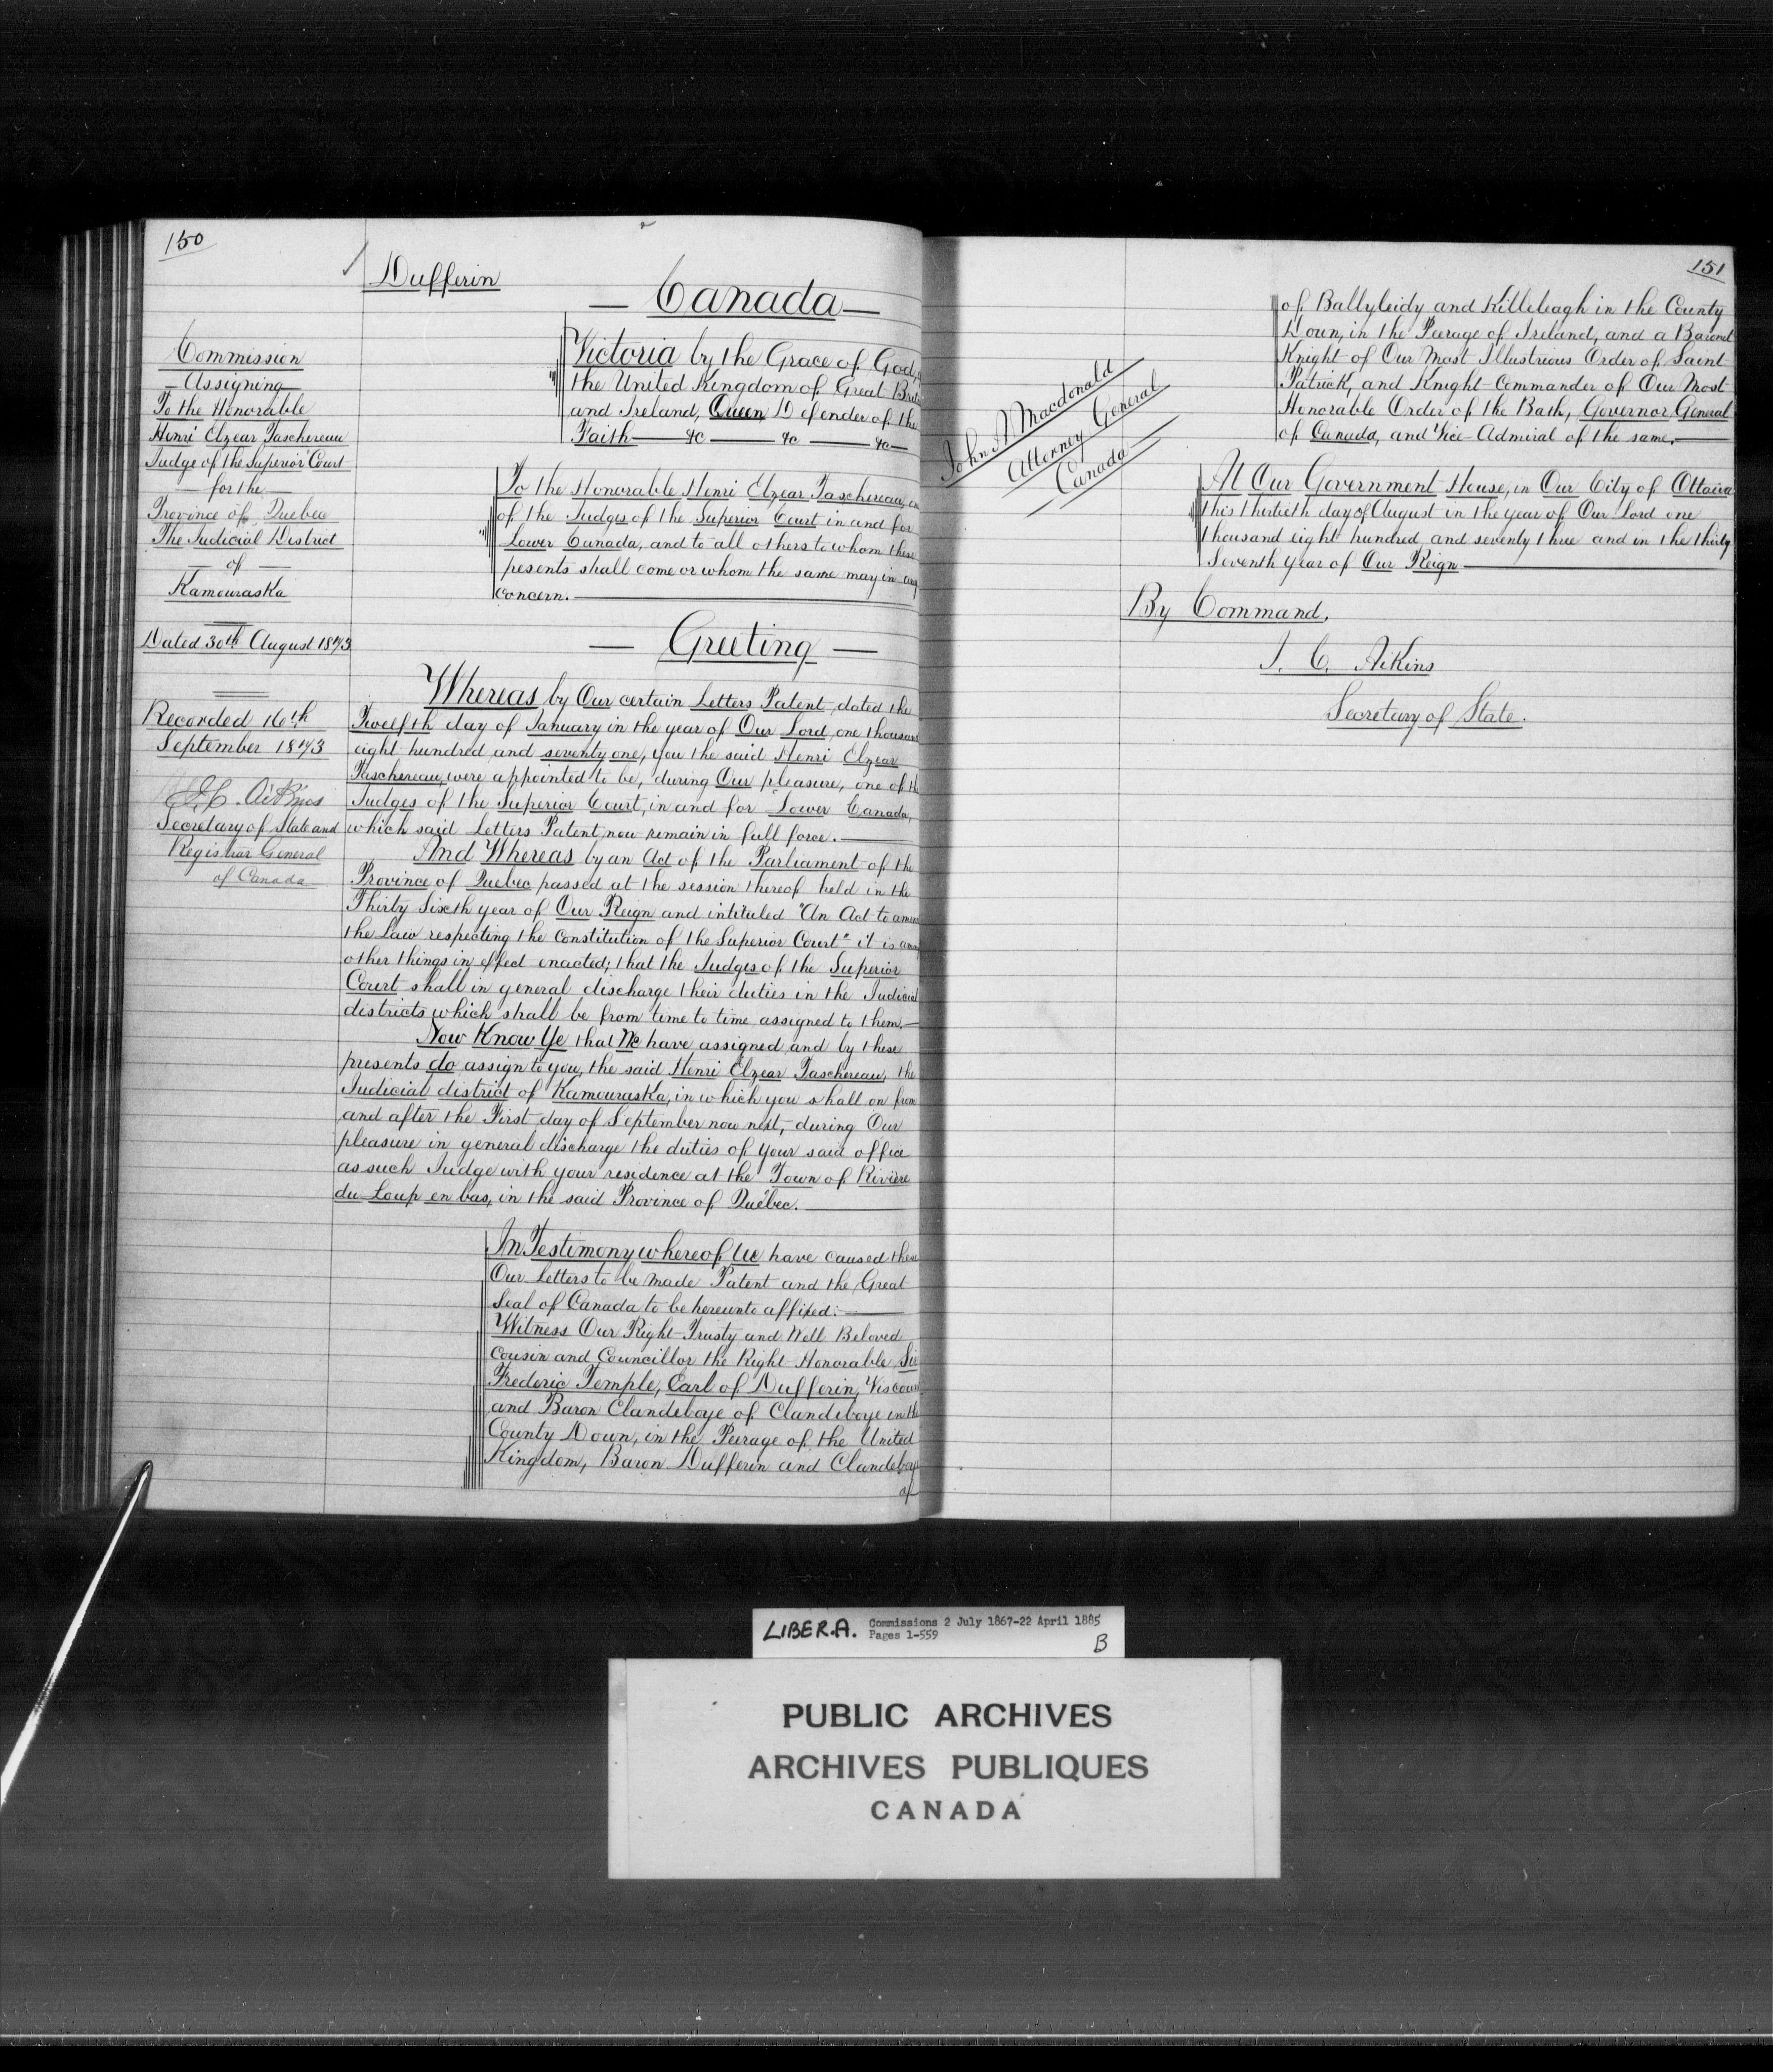 150
Dufferin
— Canada —
Commission
— Assigning —
To the Honorable
Henri Elzear Taschereau
Judge of the Superior Court
— for the —
Province of Quebec
The Judicial District
— of —
Kamouraska
Dated 30th August 1873
Recorded 16th
September 1873
J.C. Aikins
Secretary of State and
Registrar General
of Canada
Victoria by the Grace of God,
the United Kingdom of Great Brita
and Ireland, Queen Defender of the
Faith — &c — &c — &c —
To the Honorable Henri Elzear Taschereau, on
of the Judges of the Superior Court in and for
Lower Canada, and to all others to whom these
pesents shall come or whom the same may in any
concern. —
— Greeting —
Whereas by Our certain Letters Patent, dated the
Twelfth day of January in the year of Our Lord, one thousand
eight hundred and seventy one, you the said Henri Elzear
Taschereau, were appointed to be, during Our pleasure, one of the
Judges of the Superior Court, in and for Lower Canada,
which said Letters Patent, now remain in full force. —
And Whereas by an Act of the Parliament of the
Province of Quebec passed at the session thereof held in the
Thirty Sixth year of Our Reign and intituled "An Act to amen
the Law respecting the Constitution of the Superior Court" it is among
other things in effect enacted; that the Judges of the Superior
Court shall in general discharge their duties in the Judicial
districts which shall be from time to time assigned to them, —
Now Know Ye that We have assigned and by these
presents do assign to you, the said Henri Elzear Taschereau, the
Judicial district of Kamouraska, in which you shall on from
and after the First day of September now next, during Our
pleasure in general discharge the duties of your said office
as such Judge with your residence at the Town of Rivière
du Loup en bas, in the said Province of Québec. —
In Testimony whereof We have caused these
Our Letters to be made Patent and the Great
Seal of Canada to be hereunto affixed: —
Witness Our Right Trusty and Well Beloved
Cousin and Councillor the Right Honorable Sir
Frederic Temple, Earl of Dufferin, Viscount
and Baron Clandeboye of Clandeboye in the
County Down, in the Peerage of the United
Kingdom, Baron Dufferin and Clandeboye
of
151
of Ballyleidy and Killeleagh in the County
Down, in the Peerage of Ireland, and a Baronet
Knight of Our Most Illustrious Order of Saint
Patrick, and Knight Commander of Our Most
Honorable Order of the Bath, Governor General
of Canada, and Vice-Admiral of the same. —
John A Macdonald
Attorney General
Canada
At Our Government House, in Our City of Ottawa
this thirtieth day of August in the year of Our Lord one
thousand eight hundred and seventy three and in the thirty
Seventh year of Our Reign —
By Command,
J. C. Aikins
Secretary of State.
LIBER.A. Commissions 2 July 1867-22 April 1885
Pages 1-559
B
PUBLIC ARCHIVES
ARCHIVES PUBLIQUES
CANADA